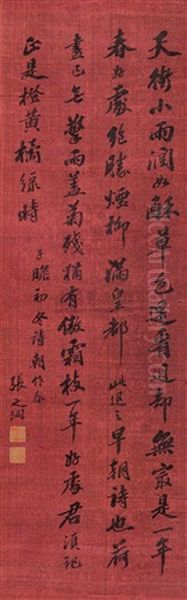 天街小雨潤如酥草色遥看近却無最是一年
春好處絕勝煙柳滿皇都 此退之早朝詩也荷
盡已無擎雨蓋菊殘猶有傲霜枝一年好處君須記
正是橙黃橘綠時
子瞻初冬詩
張之洞